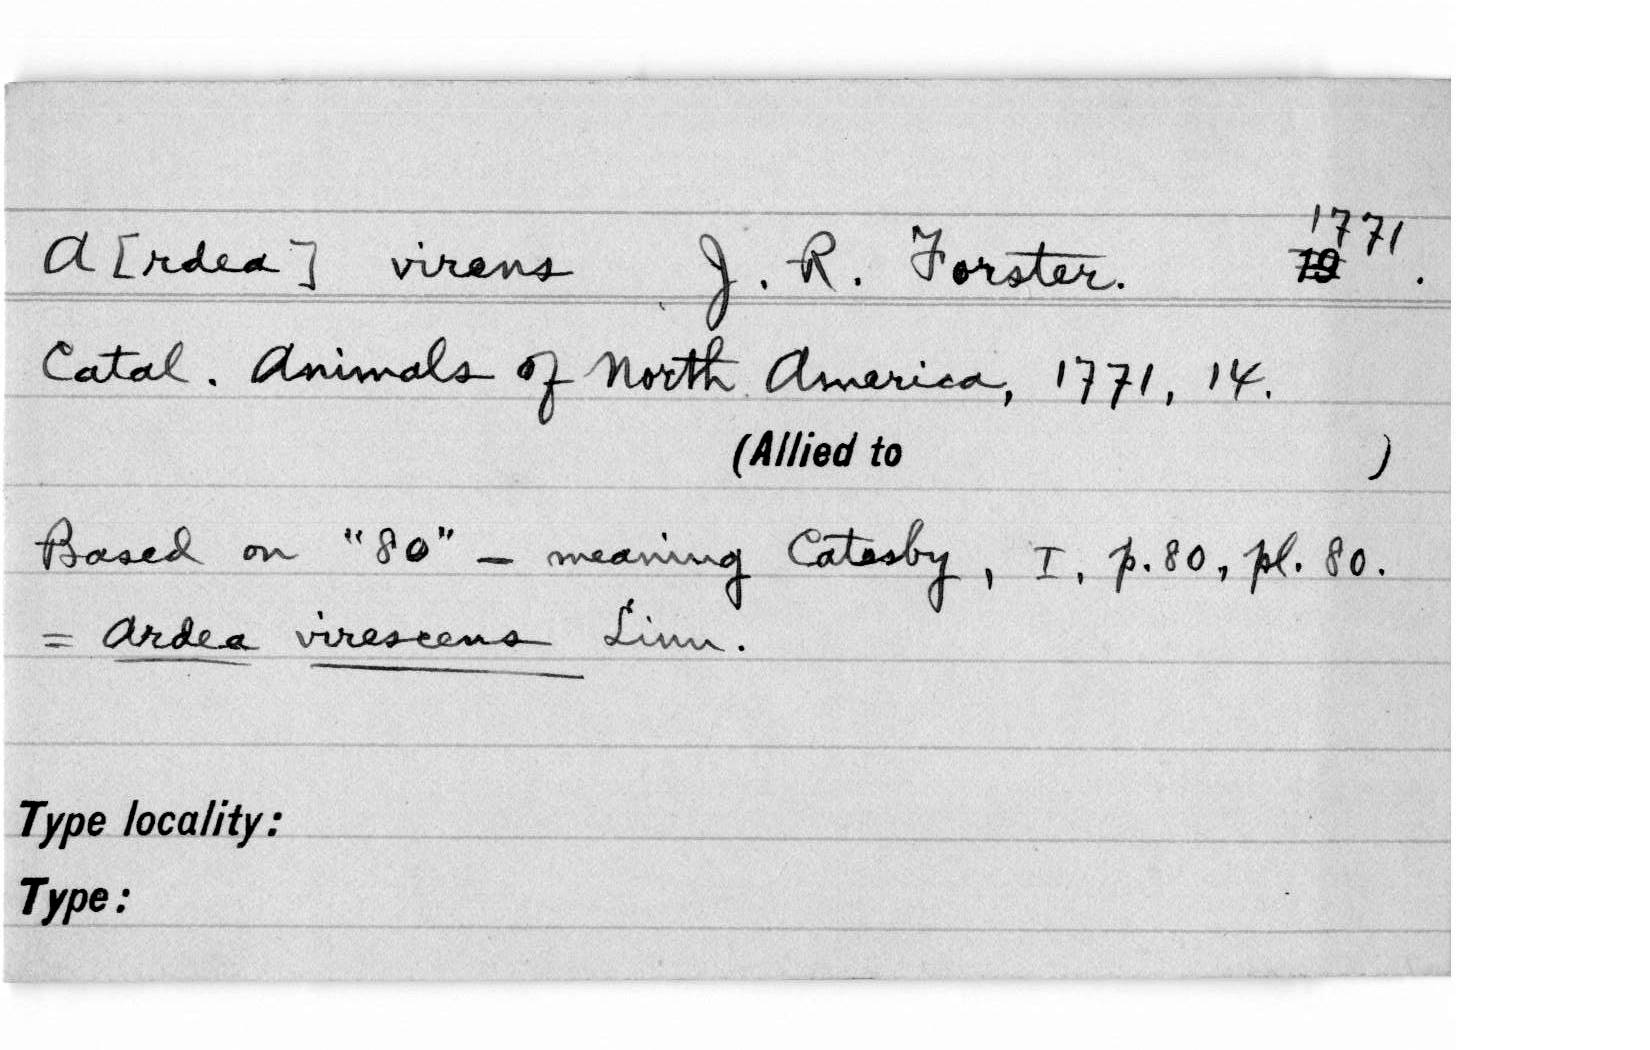 A[rdea] virens J. R. Forster. 1771.
Catal. Animals of North America, 1771, 14.
(Allied to )
Based on "80" – meaning Catesby, I, p. 80, pl. 80.
= Ardea virescens Linn.
Type locality:
Type: